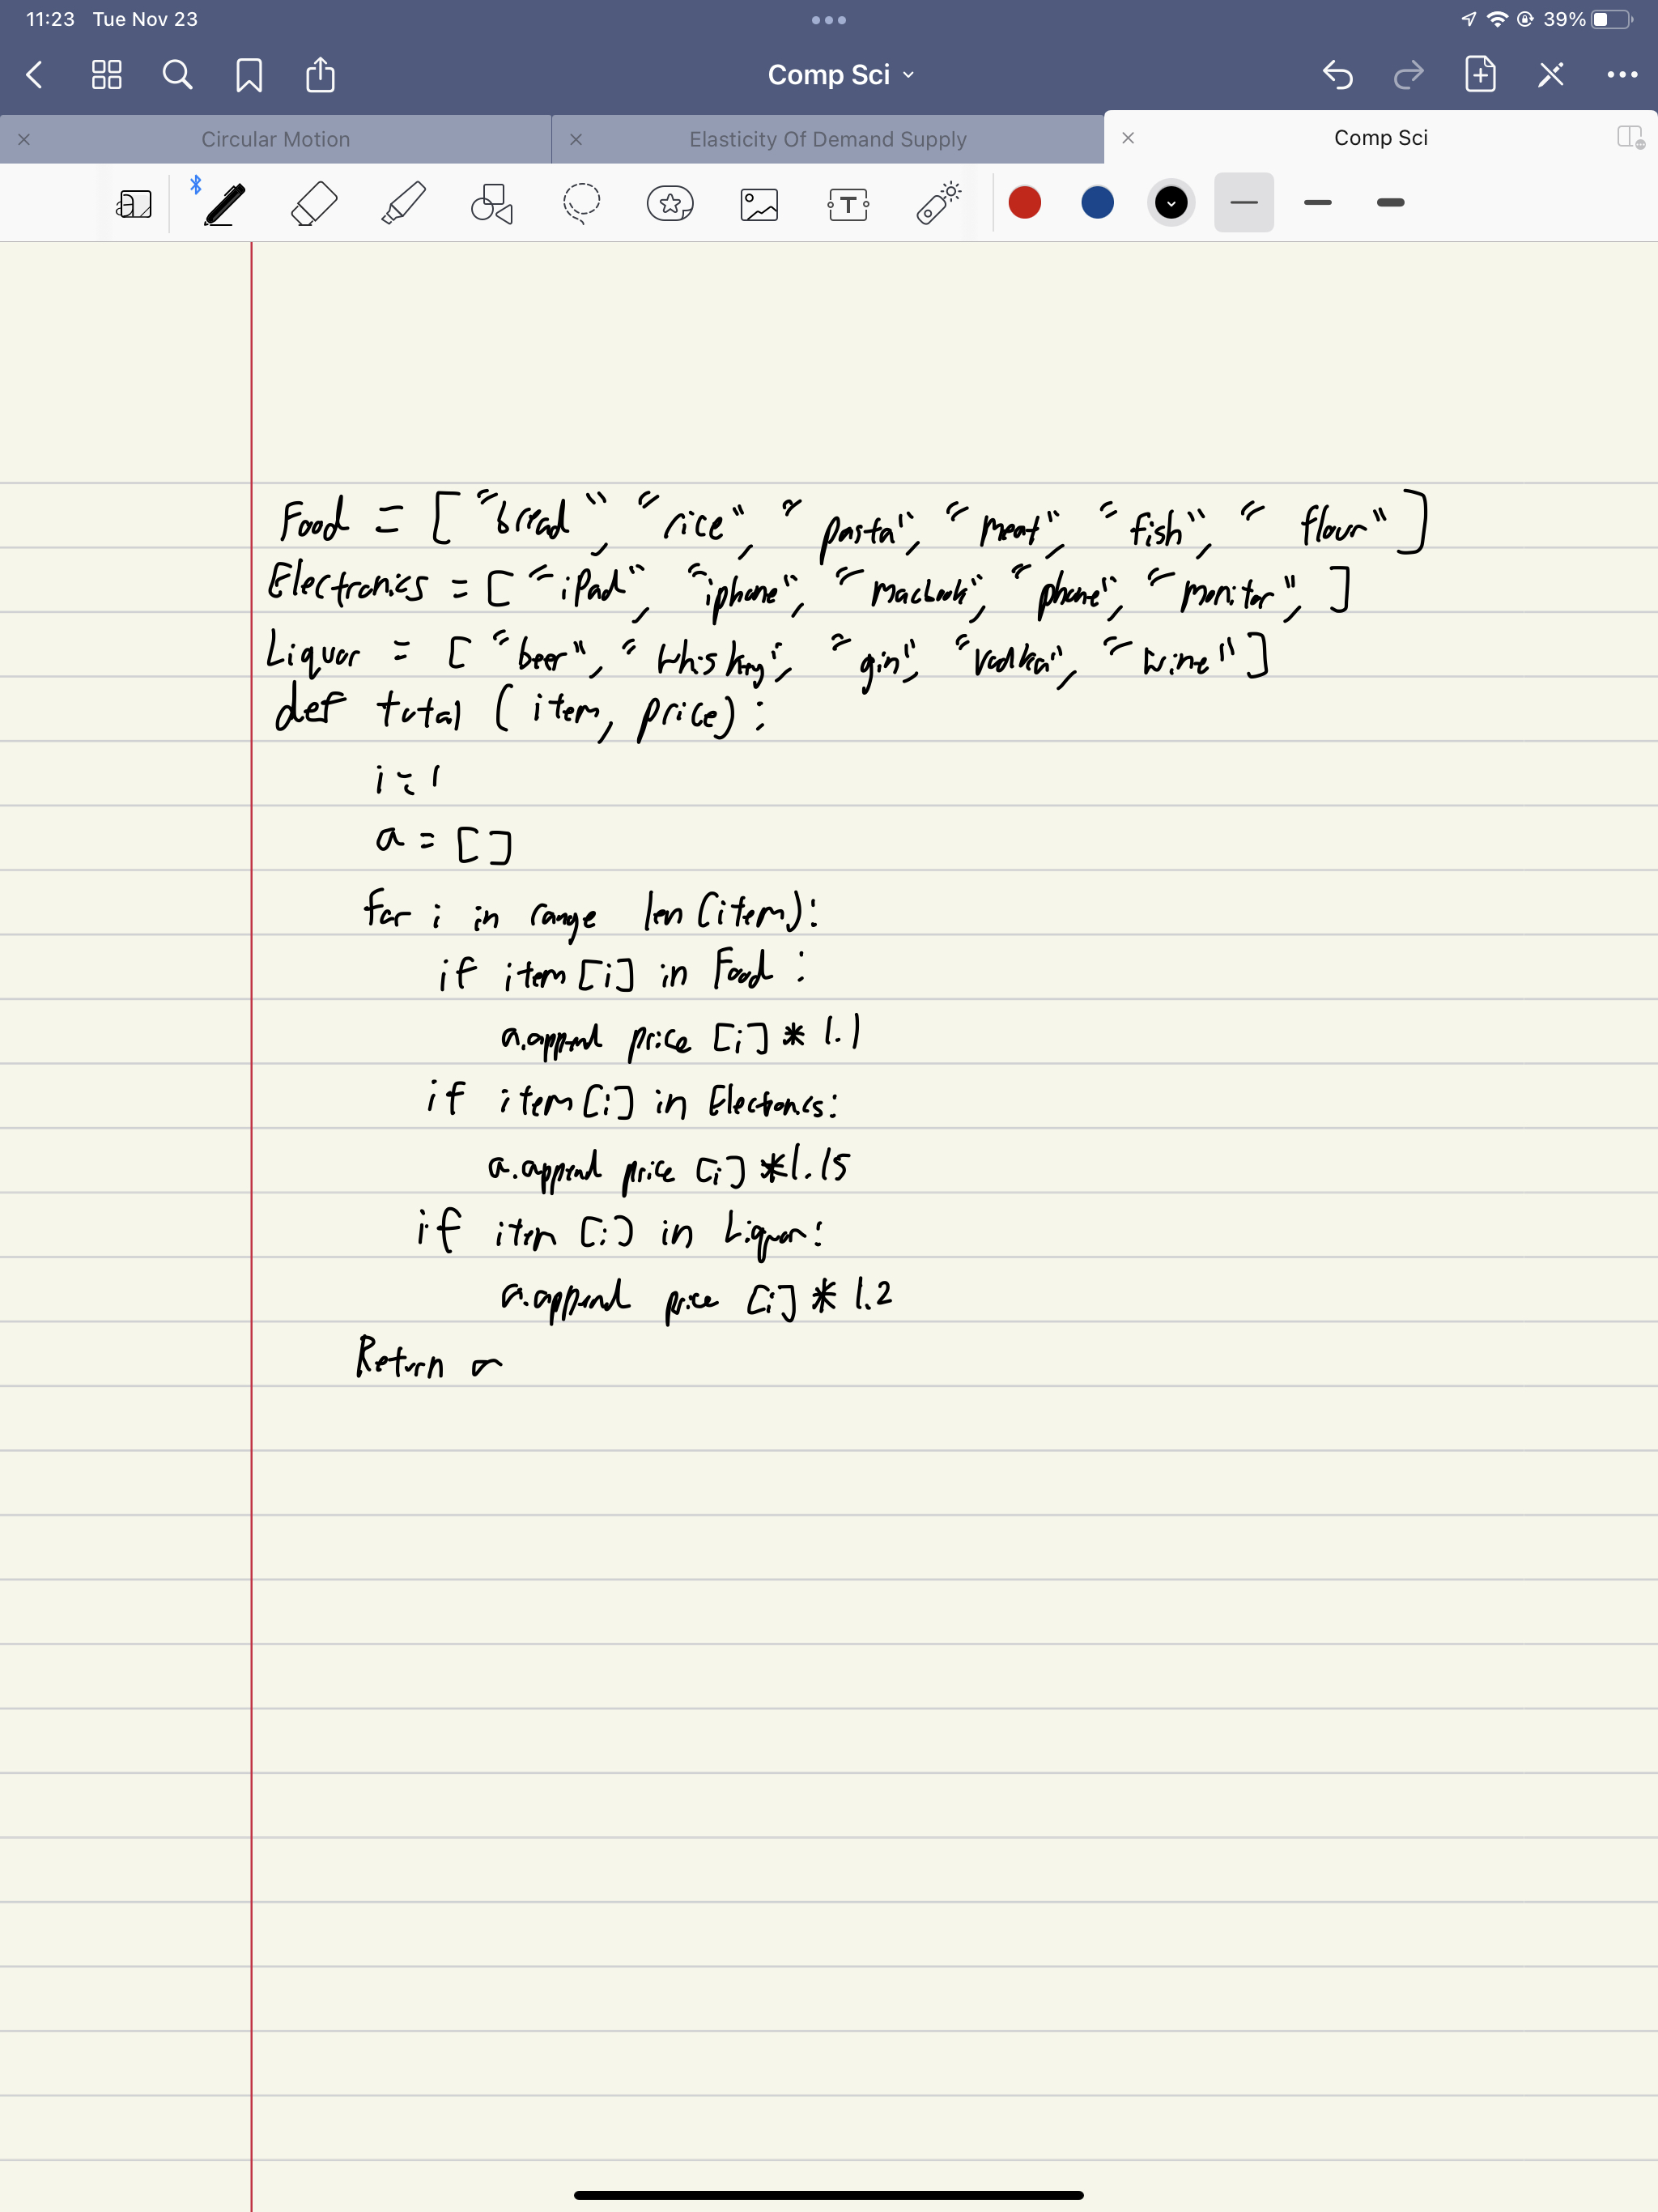 11:23 Tue Nov 23 39%
Comp Sci
Circular Motion Elasticity Of Demand Supply Comp Sci
Food = ["bread", "rice", "pasta", "meat", "fish", "flour"]
Electronics = ["iPad", "iphone", "macbook", "phone", "monitor", ]
Liquor = ["beer", "whiskey", "gin", "vodka", "wine"]
def total (item, price):
i = 1
a = []
for i in range len(item):
if item[i] in Food :
a.append price [i] * 1.1
if item[i] in Electronics:
a.append price [i] * 1.15
if item [i] in Liquor:
a.append price [i] * 1.2
Return a